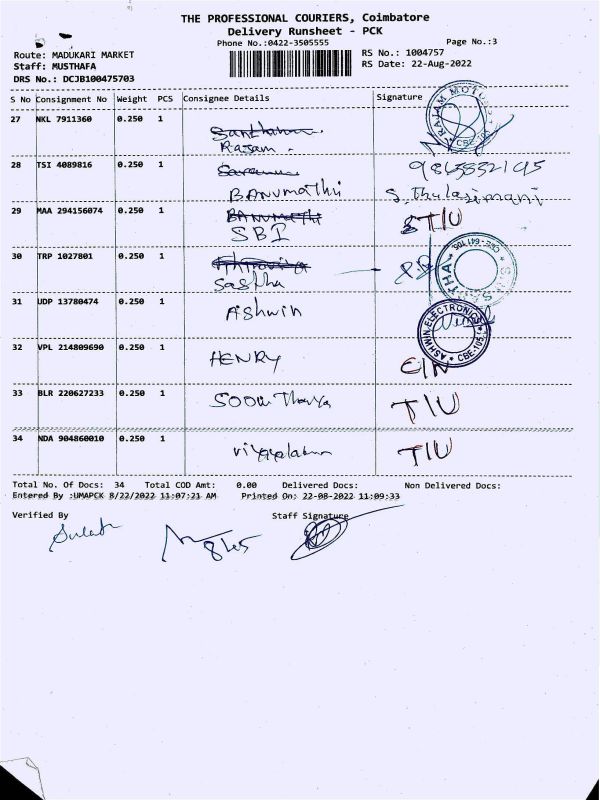 THE PROFESSIONAL COURIERS, Coimbatore
Delivery Runsheet - PCK
Phone No.:0422-3505555
Page No.:3
Route: MADUKARI MARKET
Staff: MUSTHAFA
DRS No.: DCJB100475703
RS No.: 1004757
RS Date: 22-Aug-2022
S No Consignment No Weight PCS Consignee Details Signature
27 NKL 7911360 0.250 1
Rajam.
RAJAM MOTO
CBE-105
28 TSI 4089816 0.250 1
BANUMathi S. Thulasimani
29 MAA 294156074 0.250 1 BANUMathi
SBI
30 TRP 1027801 0.250 1
Sastha
31 UDP 13780474 0.250 1 Ashwin
ASHWIN ELECTRONICS
32 VPL 214809690 0.250 1 HENRY
33 BLR 220627233 0.250 1
34 NDA 904860010 0.250 1
Total No. Of Docs: 34 Total COD Amt: 0.00 Delivered Docs: Non Delivered Docs:
Entered By :UMAPCK 8/22/2022 11:07:21 AM Printed On: 22-08-2022 11:09:33
Verified By Staff Signature